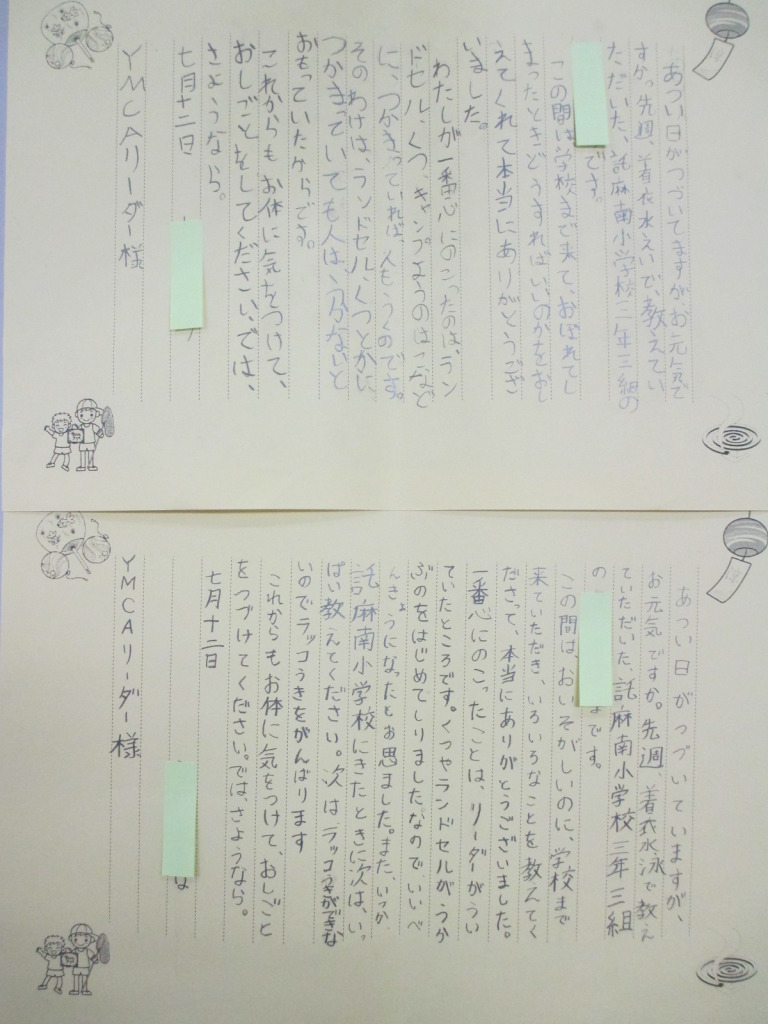 あつい日がつづいてますが、お元気で
すか。先週、着衣水えいで、教えてい
ただいた、託麻南小学校三年三組の
です。
この間は学校まで来て、おぼれてし
まったときどうすればいいのかをおし
えてくれて本当にありがとうござ
いました。
わたしが一番心にのこったのは、ラン
ドセル、くつ、キャンプようのはこなど
に、つかまっていれば、人もうくのです。
そのわけは、ランドセル、くつとかに、
つかまっていても人は、うかないと
おもっていたからです。
これからもお体に気をつけて、
おしごとをしてください。では、
さようなら。
七月十二日
YMCAリーダー様
あつい日がつづいていますが、
お元気ですか。先週、着衣水泳で教え
ていただいた、託麻南小学校三年三組
の
です。
この間は、おいそがしいのに、学校まで
来ていただき、いろいろなことを教えてく
ださって、本当にありがとうございました。
一番心にのこったことは、リーダーがうい
ていたところです。くつやランドセルがうか
ぶのをはじめてしりましたなので、いいべ
んきょうになったとお思ました。また、いつか
託麻南小学校にきたときに次は、いっ
ぱい教えてください。次はラッコうきができな
いのでラッコうきをがんばります
これからもお体に気をつけて、おしごと
をつづけてください。では、さようなら。
七月十二日
な
YMCAリーダー様